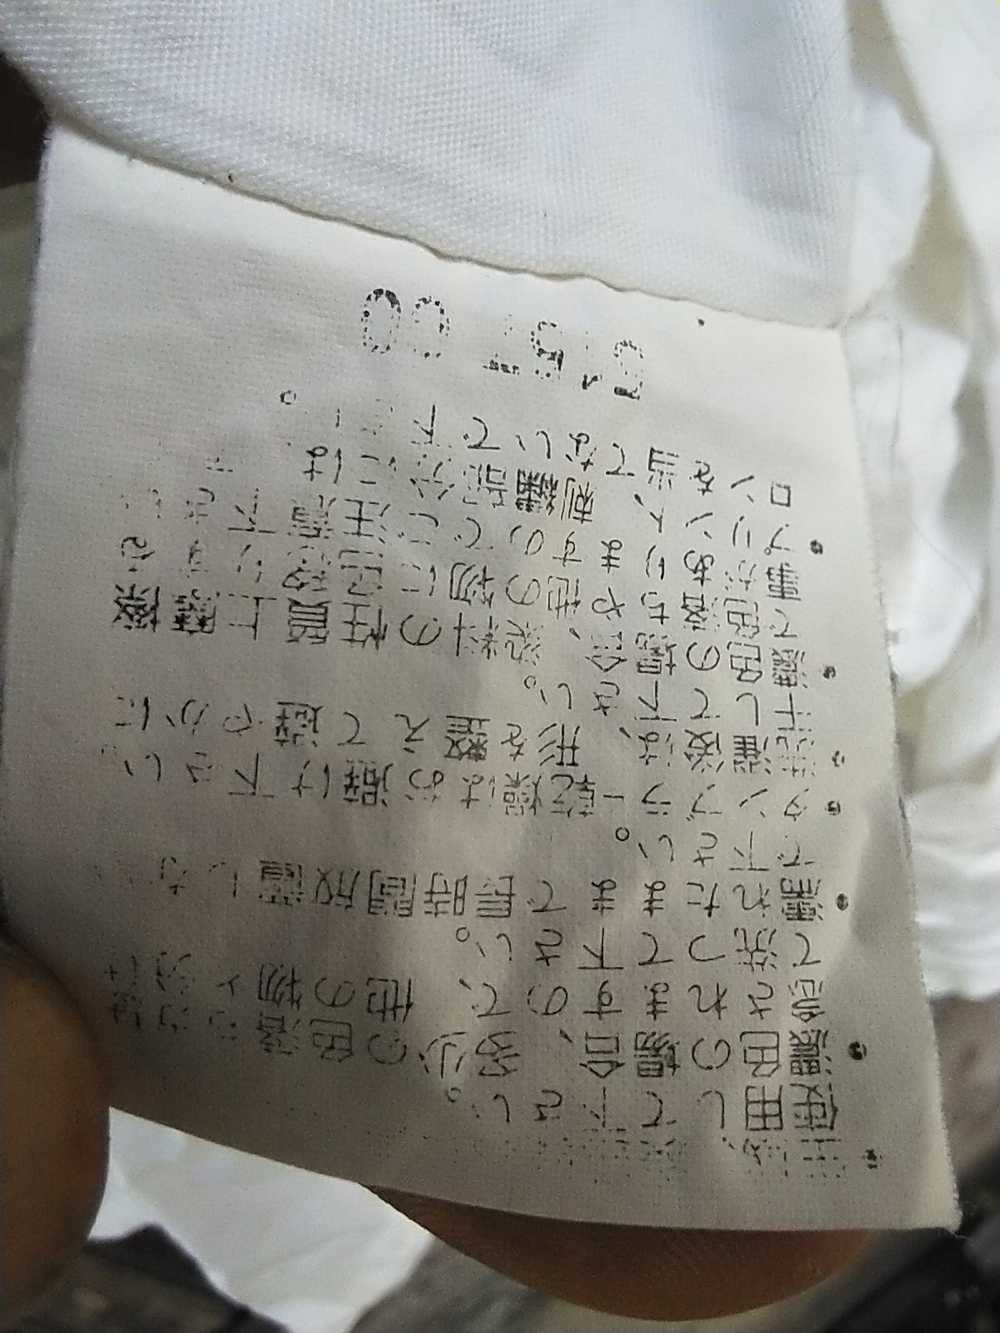 使用して下さい。
・濃色の場合、多少の色落ち
念されますので、他の物と分け
て洗って下さい。
・濡れたままで長時間放置しな
で下さい。
・タンブラー乾燥はお避け下さい。
・洗濯後は、形を整えて速やかに
干して下さい。
・濃色の場合、染料の性質上摩擦
で色落ちや、他の物に色移りする
事がありますのでご注意下さい
・プリント、刺繍部分には
ロンを当てないで下さい。